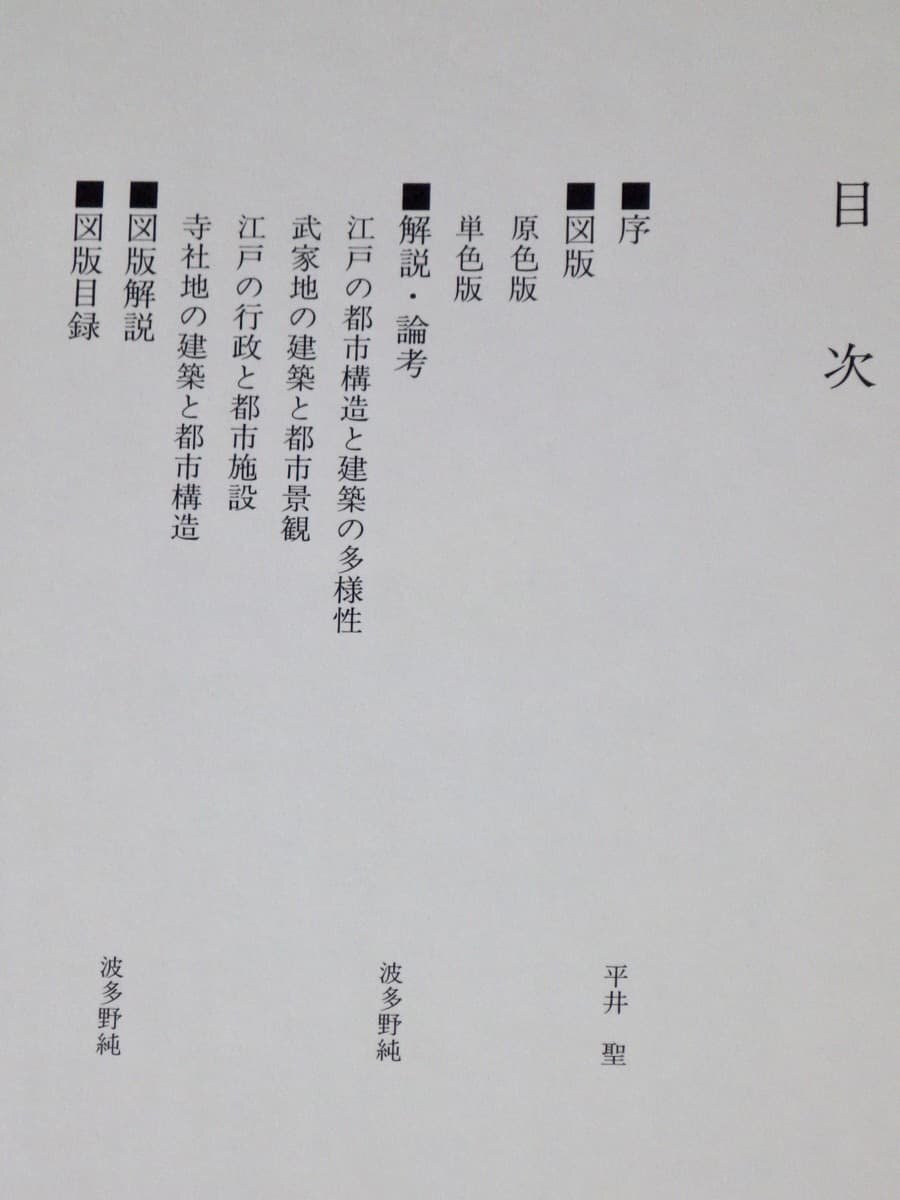 目次
■序　平井　聖
■図版
原色版
単色版
■解説・論考　波多野純
江戸の都市構造と建築の多様性
武家地の建築と都市景観
江戸の行政と都市施設
寺社地の建築と都市構造
■図版解説　波多野純
■図版目録